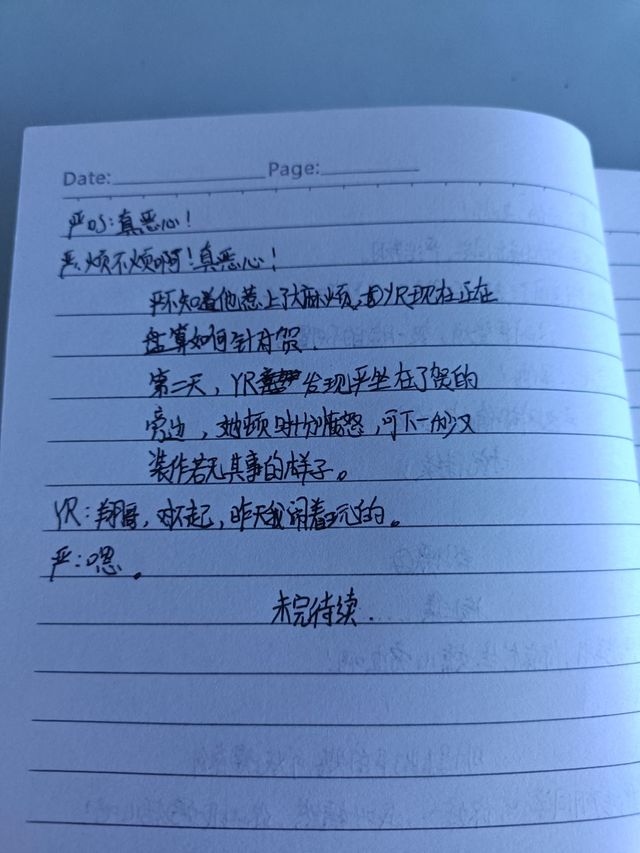 Date: Page:
严OS:真恶心!
严:烦不烦啊!真恶心!
严不知道他惹上了大麻烦,因YR现在正在
盘算如何针对贺.
第二天,YR发现严坐在了贺的
旁边,她顿时十分愤怒,可下一秒又
装作若无其事的样子。
YR:翔哥,对不起,昨天我闹着玩的。
严:嗯。
未完待续.